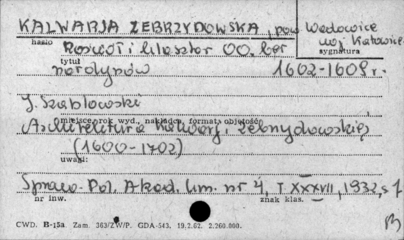 KALWARJA ZEBRZYDOWSKA, pow. Wadowice
woj. Katowice
hasło
sygnatura
Kościół i klasztor OO. Ber
tytuł
nardynów 1602-1609 r.
J. Szabłowski
miejsce i rok wyd., nakładca, format, objętość
Architektura Kalwarji Zebrzydowskiej
(1600-1702)
uwagi:
Spraw. Pol. Akad. Um. nr 4, T. XXXVII, 1932, s
nr inw.
znak klas.
CWD. B-15a Zam. 363/ZW/P. GDA-543. 19.2.62. 2.260.000.